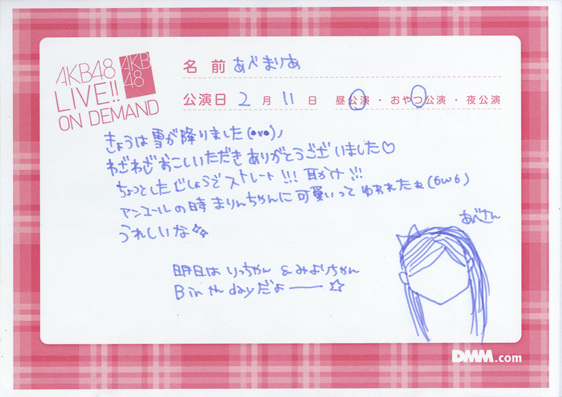 AKB48
LIVE!!
ON DEMAND
AKB
48
名 前 あべまりあ
公演日 2 月 11 日 昼公演・おやつ公演・夜公演
きょうは雪が降りました(ovo)ノ
わざわざおこしいただきありがとうございました♡
ちょっとしたじょうぞストレート!!! 耳かけ!!!
アンコールの時 まりんちゃんに可愛いって ゆわれたね(6w6)
うれしいな
あべさん
明日は りっちゃん & みよりちゃん
Birth dayだよ――☆
DMM.com